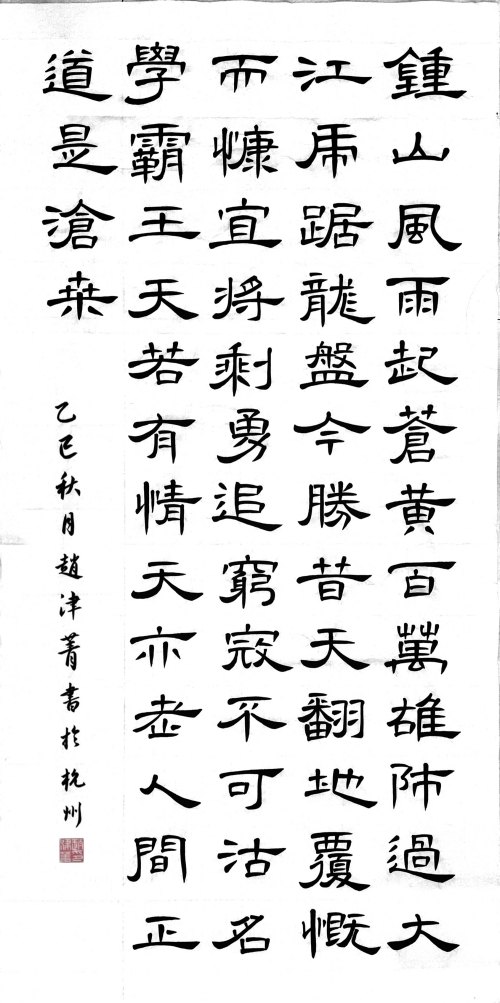 鍾山風雨起蒼黄百萬雄師過大
江虎踞龍盤今勝昔天翻地覆慨
而慷宜将剩勇追窮寇不可沽名
學霸王天若有情天亦老人間正
道是滄桒
乙巳秋月趙津菁書於杭州